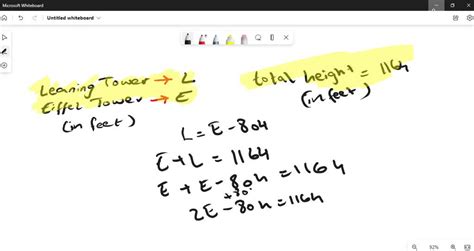 Microsoft Whiteboard
Untitled whiteboard
Leaning Tower → L
Eiffel Tower → E
(in feet)
total height = 1164
(in feet)
L = E - 804
E + L = 1164
E + E - 804 = 1164
2E - 804 = 1164
92%